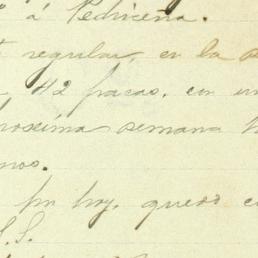 á Pedriceña.
regular, en la
42 pacas, con un
proxima semana
mos.
por hoy, quedo
S.S.